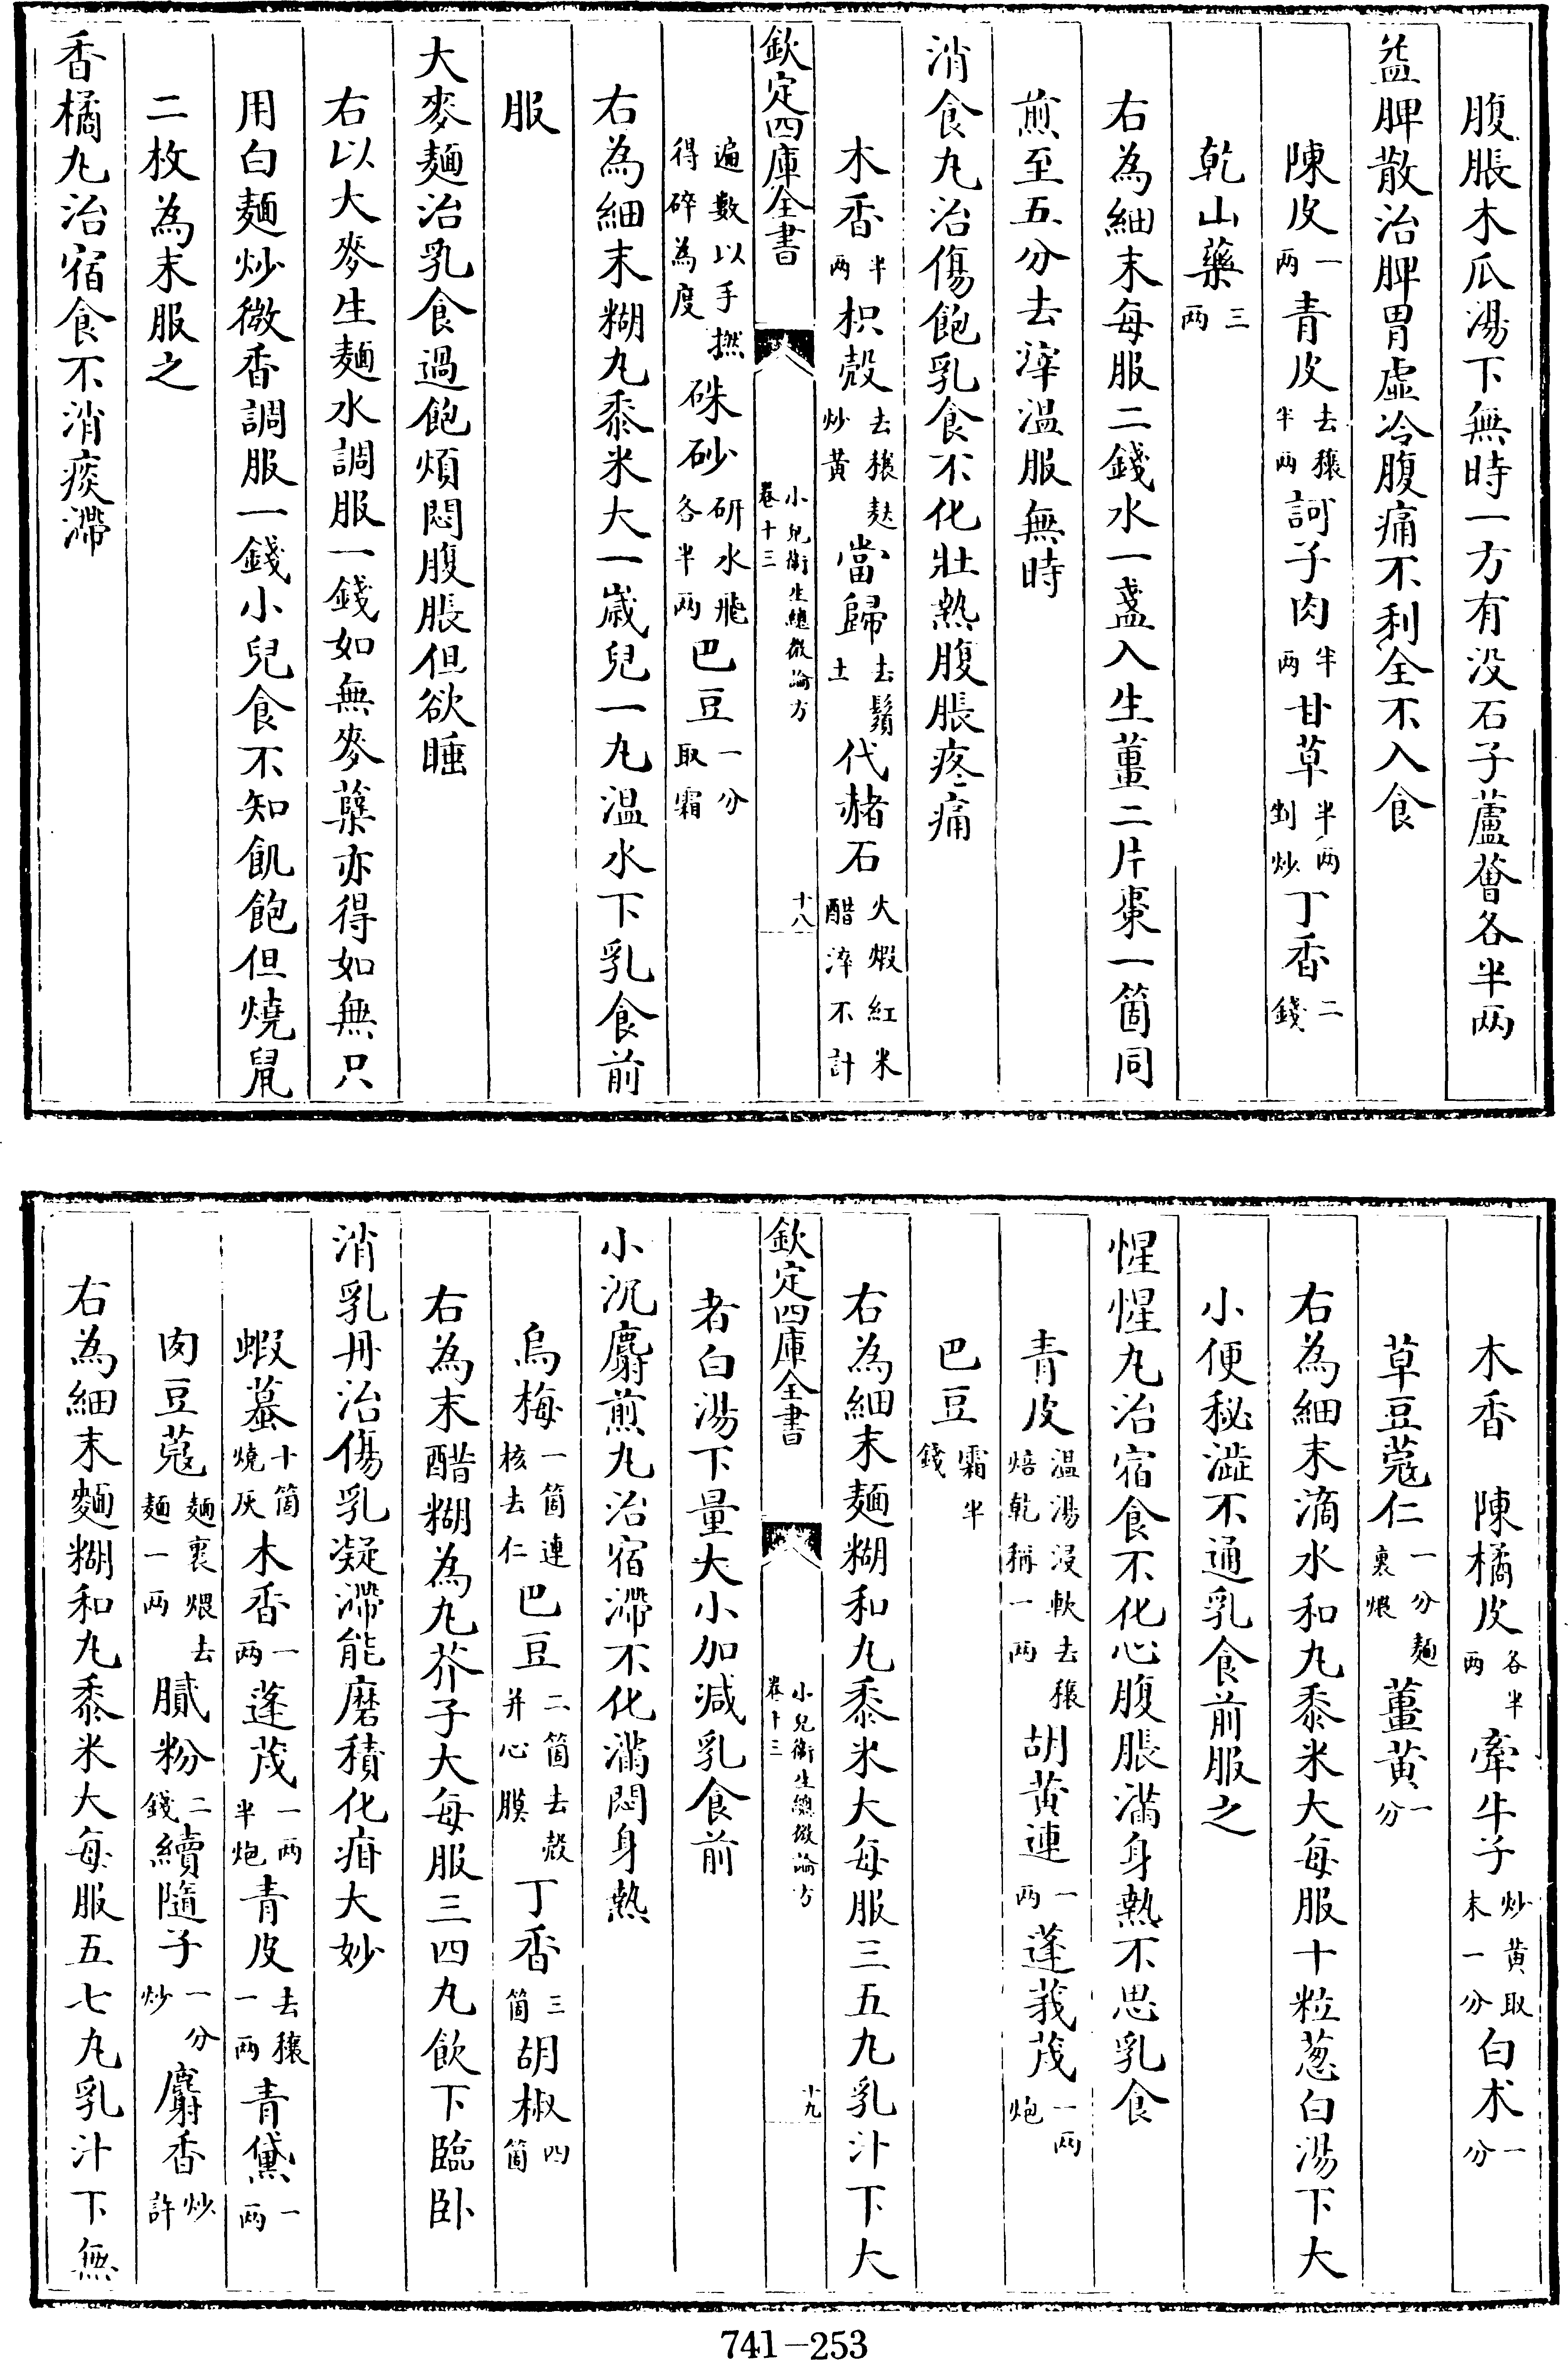 腹脹木瓜湯下無時一方有没石子蘆薈各半两
益脾散治脾胃虚冷腹痛不利全不入食
陳皮一两青皮去穰半两訶子肉半两甘草半两剉炒丁香二錢
乾山藥三两
右為細末每服二錢水一盞入生薑二片棗一箇同
煎至五分去滓温服無時
消食丸治傷飽乳食不化壯熱腹脹疼痛
木香半两枳殻去穰麸炒黄當歸去鬚土代赭石火煅紅米醋淬不計
欽定四庫全書 小兒衛生總微論方卷十三 十八
遍數以手撚得碎為度硃砂研水飛各半两巴豆一分取霜
右為細末糊丸黍米大一嵗兒一丸温水下乳食前
服
大麥麺治乳食過飽煩悶腹脹但欲睡
右以大麥生麺水調服一錢如無麥蘖亦得如無只
用白麺炒微香調服一錢小兒食不知飢飽但燒鼠
二枚為末服之
香橘丸治宿食不消痰滯
木香 陳橘皮各半两牽牛子炒黄取末一分白术一分
草豆蔻仁一分麺裹煨薑黄一分
右為細末滴水和丸黍米大每服十粒葱白湯下大
小便秘澁不通乳食前服之
惺惺丸治宿食不化心腹脹滿身熱不思乳食
青皮温湯浸軟去穰焙乾稱一两胡黄連一两蓬莪茂一两炮
巴豆霜半錢
右為細末麺糊和丸黍米大每服三五丸乳汁下大
欽定四庫全書 小兒衛生總微論方卷十三 十九
者白湯下量大小加减乳食前
小沉麝煎丸治宿滯不化滿悶身熱
烏梅一箇連核去仁巴豆二箇去殻并心膜丁香三箇胡椒四箇
右為末醋糊為丸芥子大每服三四丸飲下臨卧
消乳丹治傷乳凝滯能磨積化疳大妙
蝦蟇十箇燒灰木香一两蓬茂一两半炮青皮去穰一两青黛一两
肉豆蔻麺裹煨去麺一两膩粉二錢續隨子一分炒麝香炒許
右為細末麵糊和丸黍米大每服五七丸乳汁下無
741-253